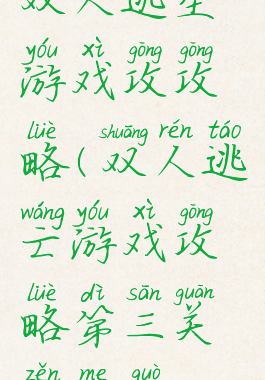 双人逃生
yóu xì gōng gōng
游戏攻攻
lüè shuāng rén táo
略(双人逃
wáng yóu xì gōng
亡游戏攻
lüè dì sān guān
略第三关
zěn me guò